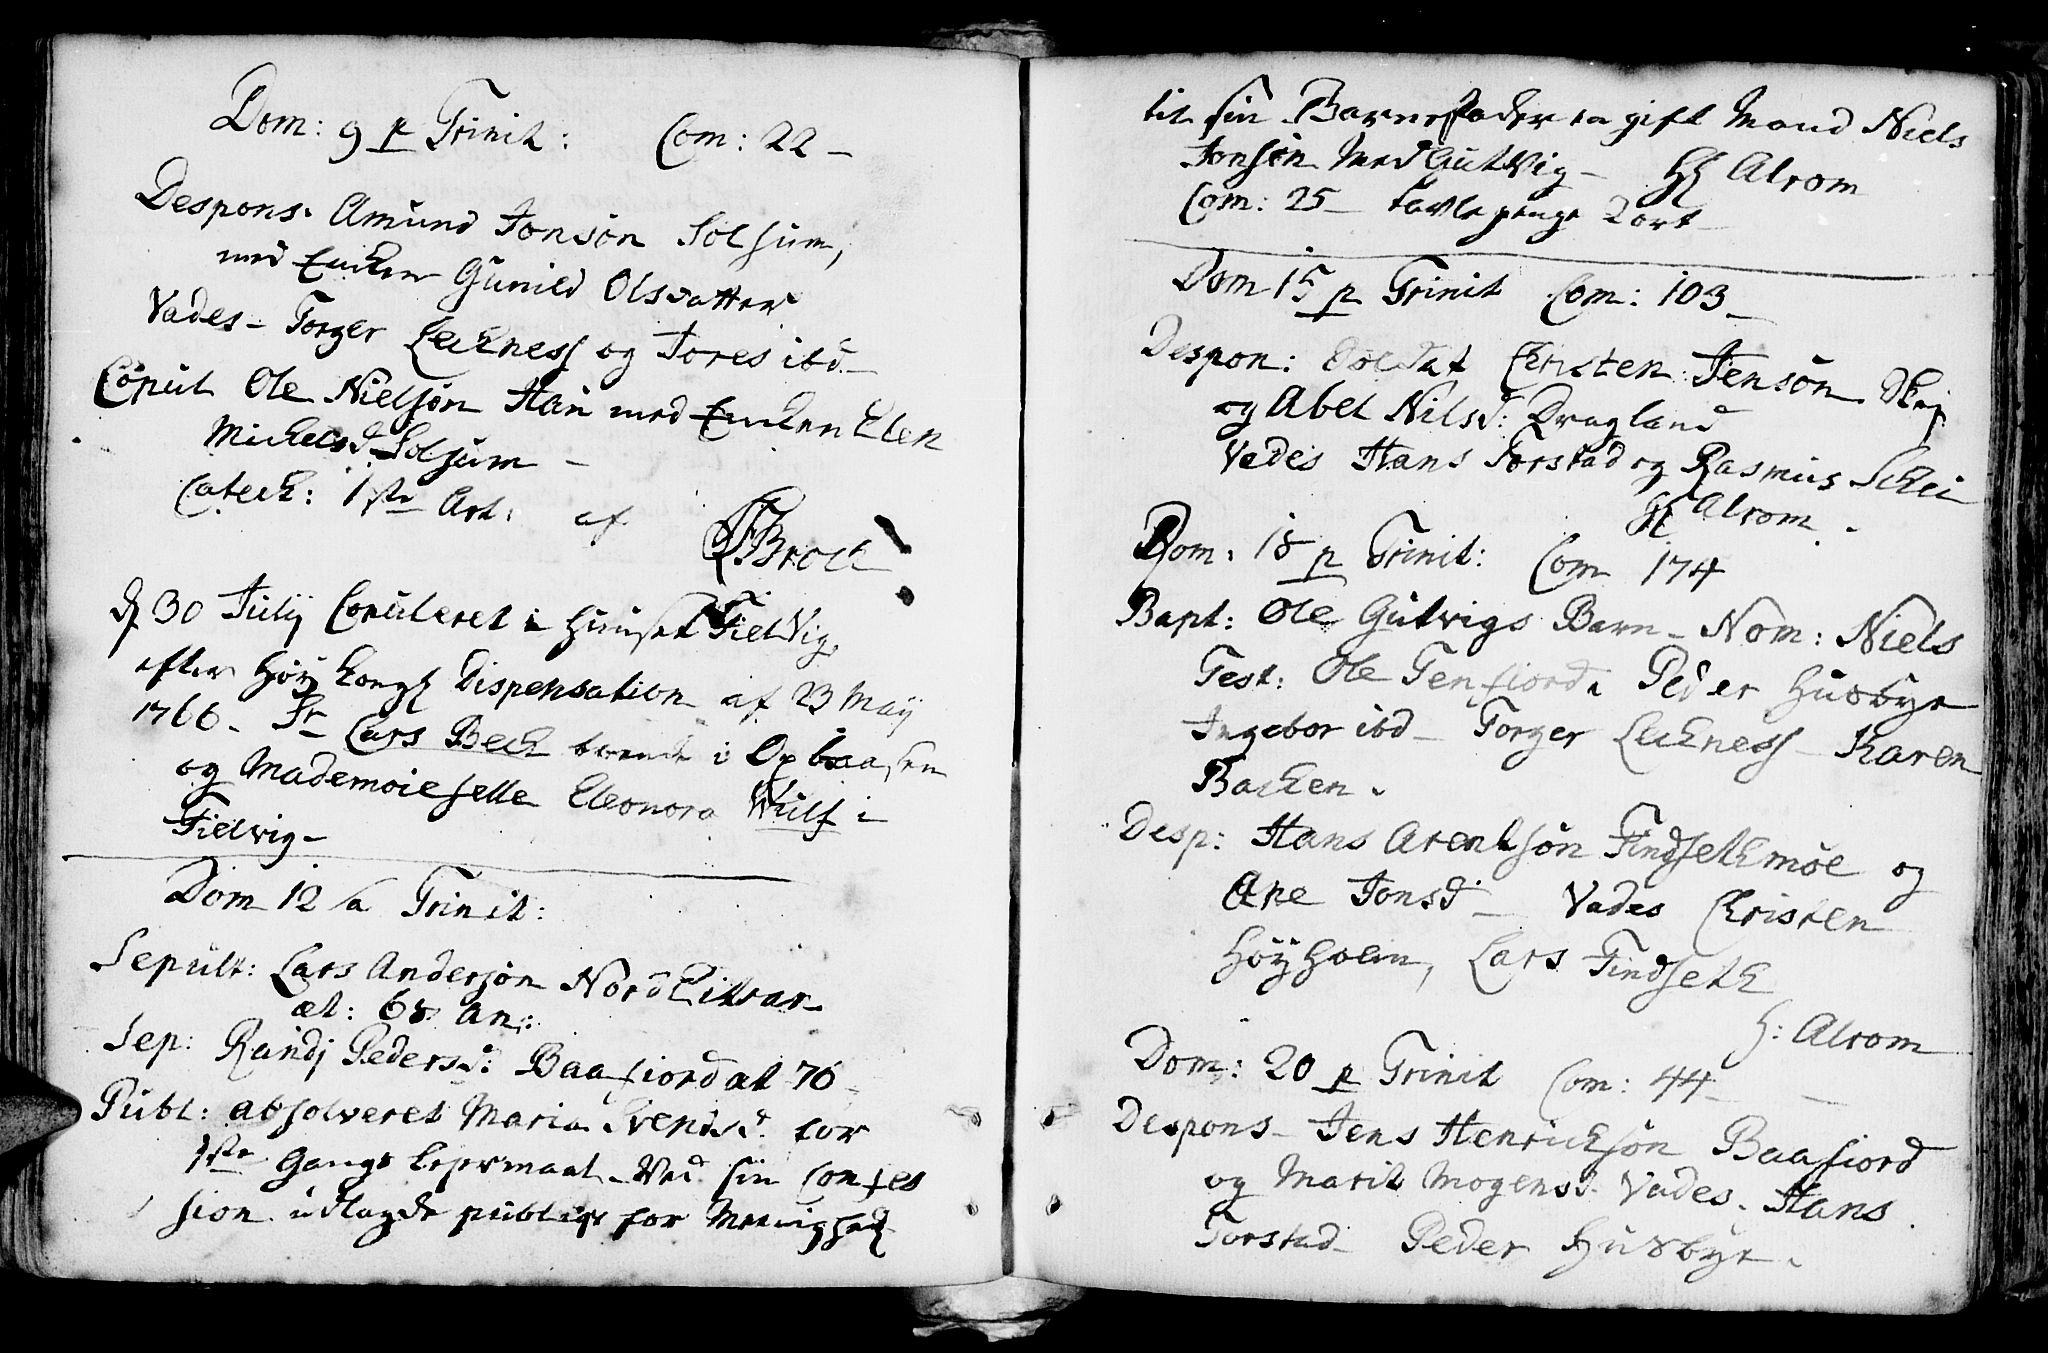 Dom: 9 p Trinit: Com: 22 –
Despons. Amund Jonsøn Solsum,
med Enken Gunild Olsdatter
Vades – Torger Leckness og Tores ibd –
Copul Ole Nielsøn Han med Enken Elen
Michelsd Solsum –
Catech: 1ste Art: af
Brock
d 30 Julij Copuleret i Huuset Tielvig,
efter Høy kongl Dispensation af 23 Maij
1766 – Sr Lars Beck boende i Opbaasen
og Mademoieselle Eleonora Wulf i
Tielvig –
Dom 12 a Trinit:
Sepult: Lars Andersøn Nordhitrar
æt: 68 an:
Sep: Randj Pedersd: Baafiord æt 76
Publ: absolveret Maria Svendsd: for
1ste Gangs Leyermaal – Ved sin Confes
sion udlagde publiqe for Menighed
til sin Barnefader en gift Mand Niels
Jonsøn Nedgutvig – H Alrom
Com: 25 – tavlepenge 2 ort –
Dom 15 p Trinit Com: 103 –
Despon: Soldat Christen Jensøn
og Abel Nilsd: Dragland
Vades Hans Torstad og Rasmus Schei
H Alrom.
Dom. 18 p Trinit: Com 174
Bapt: Ole Gutvigs Barn – Nom: Niels
Test: Ole Tenfiord, Peder Husbye
Ingebor ibd – Torger Leckness – Karen
Backen.
Desp: Hans Arentsøn Findsethmoe og
Ane Jonsd – Vades Christen
Høyholm, Lars Findseth
H: Alrom
Dom: 20 p Trinit Com: 44 –
Despons – Jens Henricksøn Baafiord
og Marit Mogensd. Vades. Hans
Torstad – Peder Husbye.